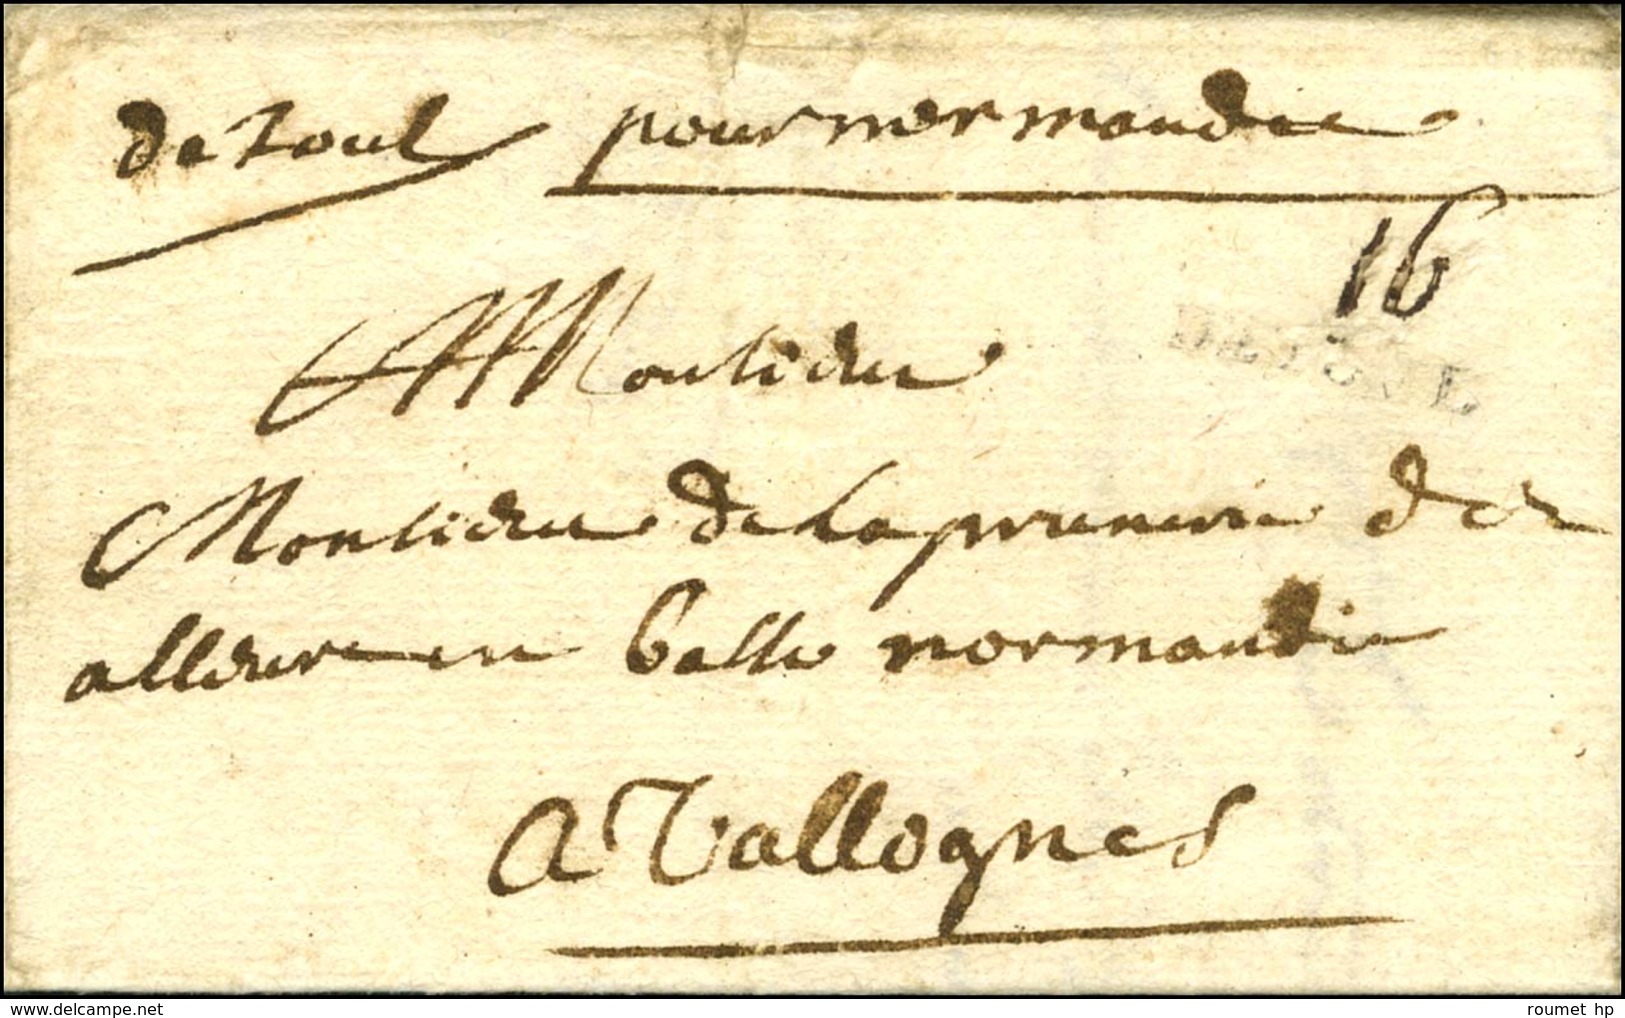 de Toul pour normandie
16
DE TOUL
Monsieur
Monsieur de la prunerie des
alleurs en basse normandie
A Vallognes
www.delcampe.net
roumet hp